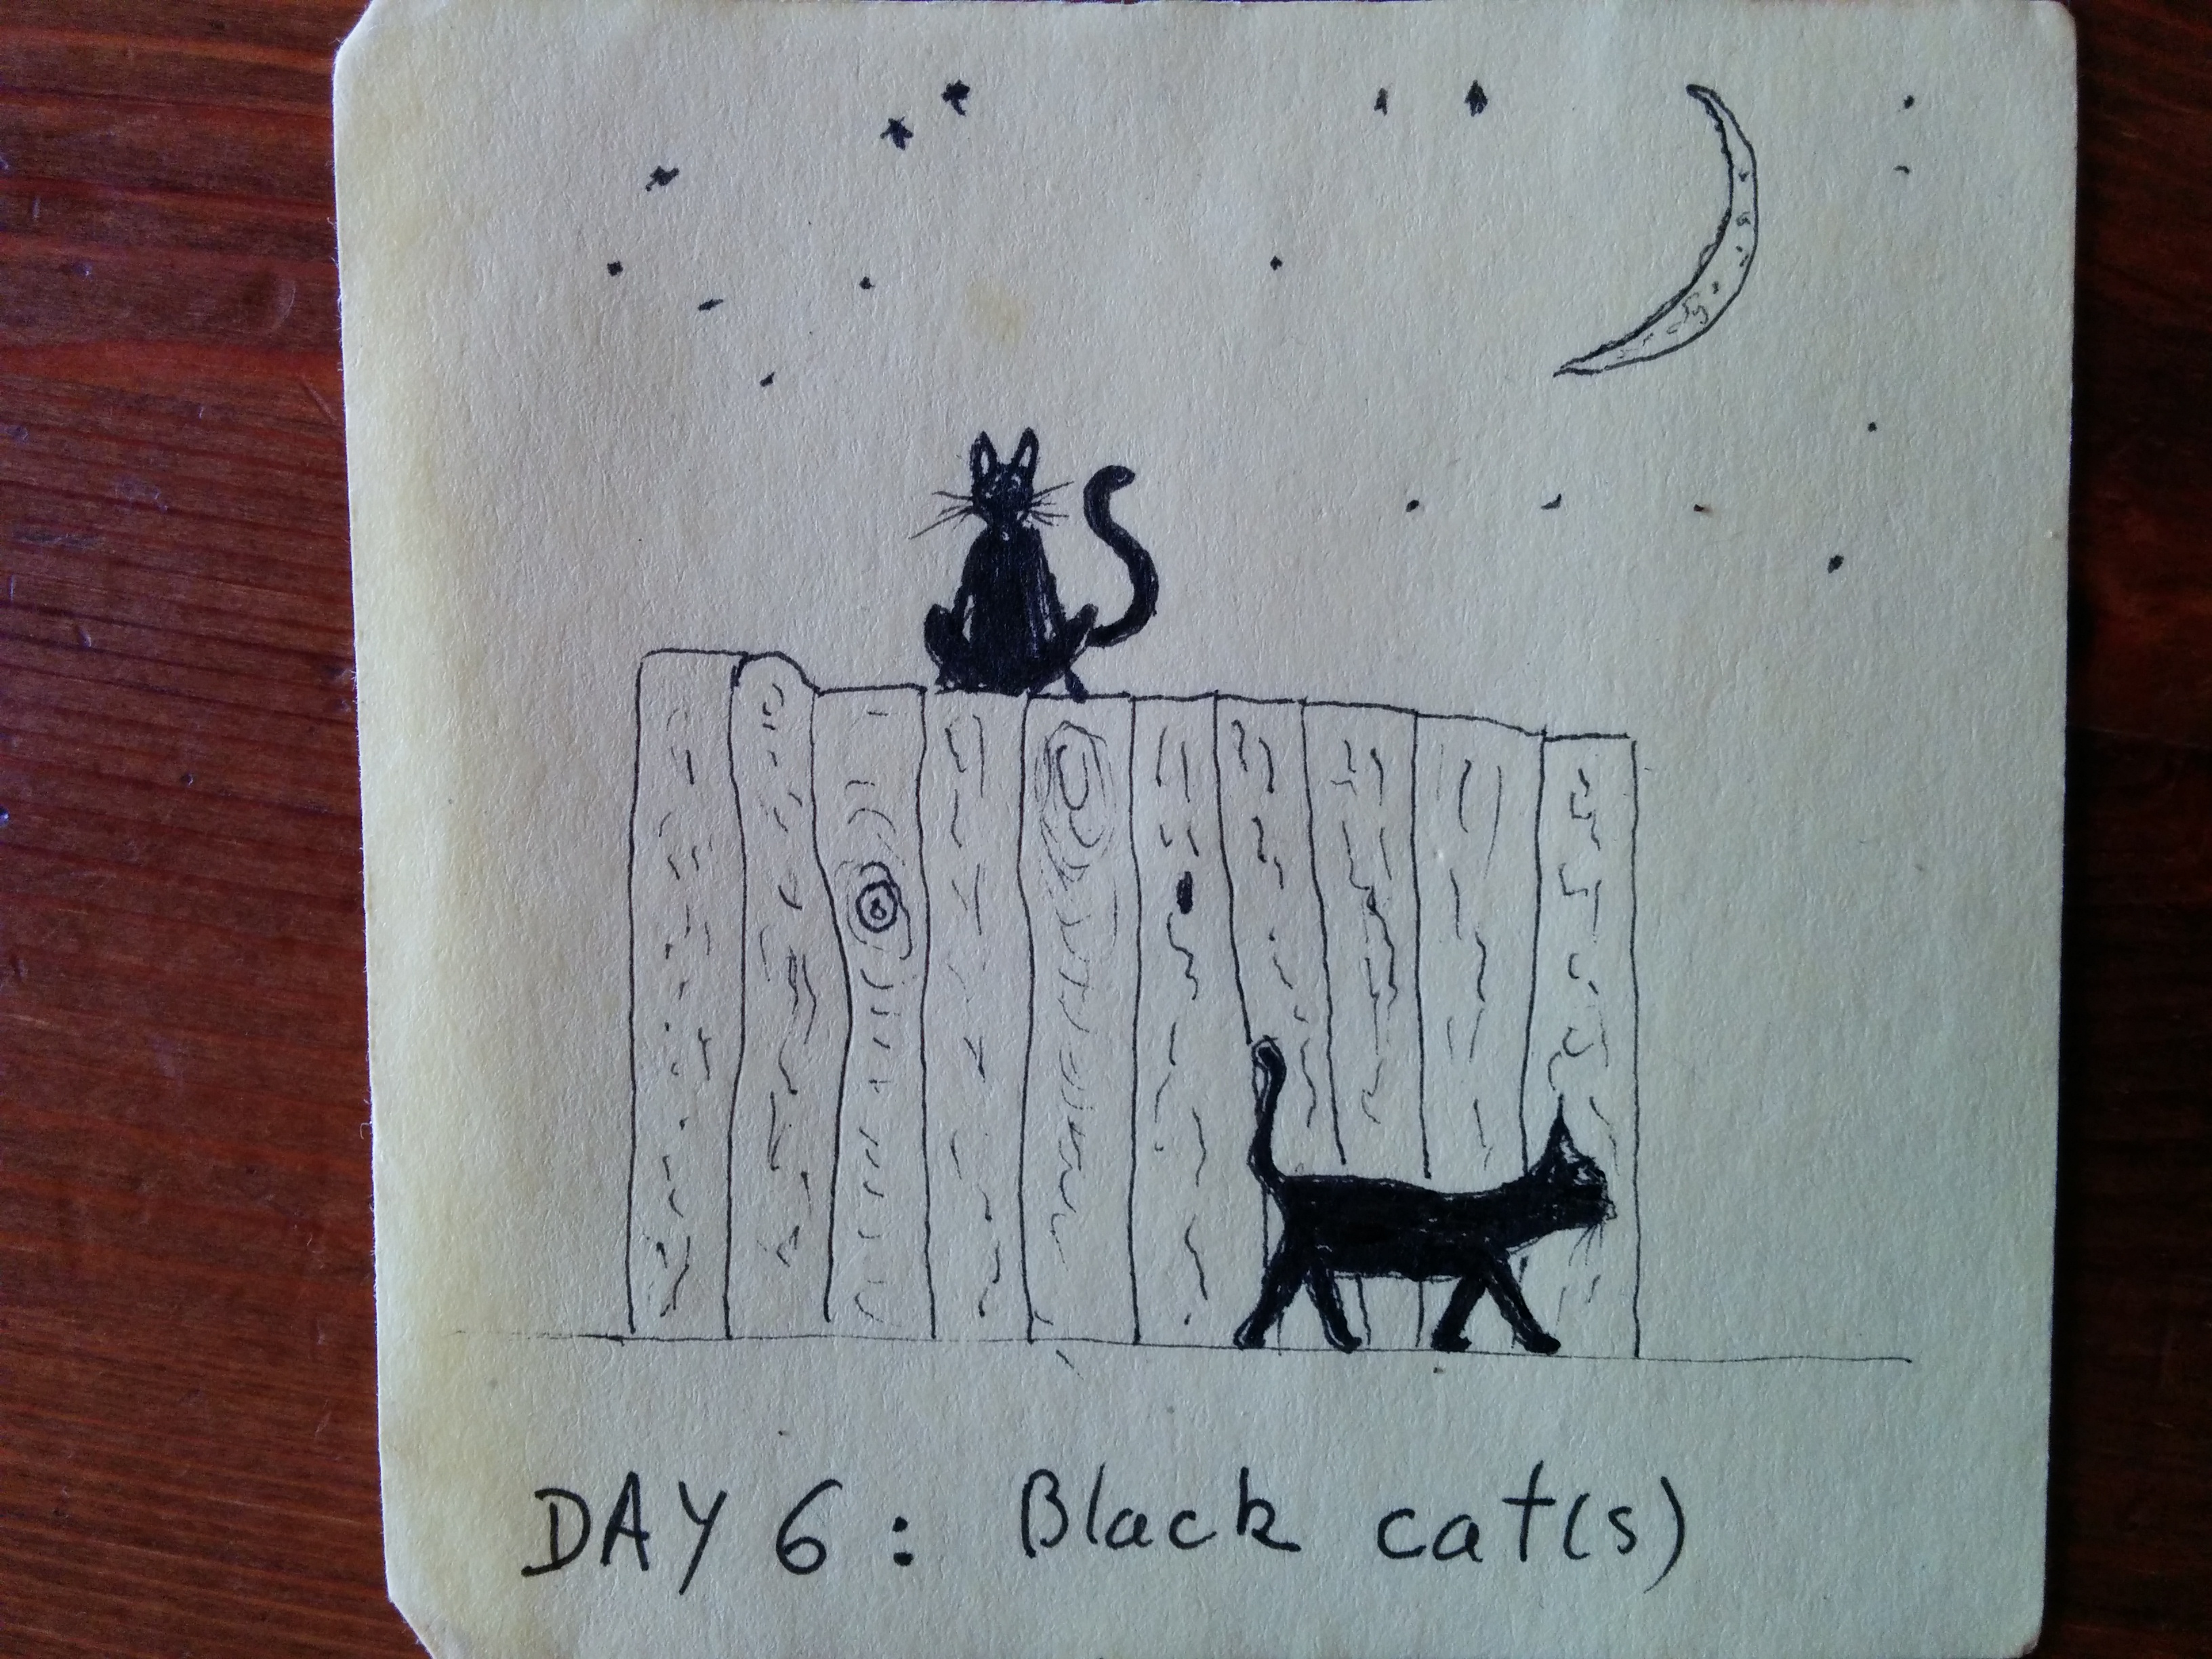 DAY 6: Black cat(s)